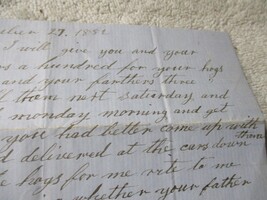 ber 27, 1882
I will give you and your
a hundred for your hogs
and your farthers three
them next Saturday and
monday morning and get
you had better come up with them
delivered at the cars down
hogs for me rite to me
whether your father